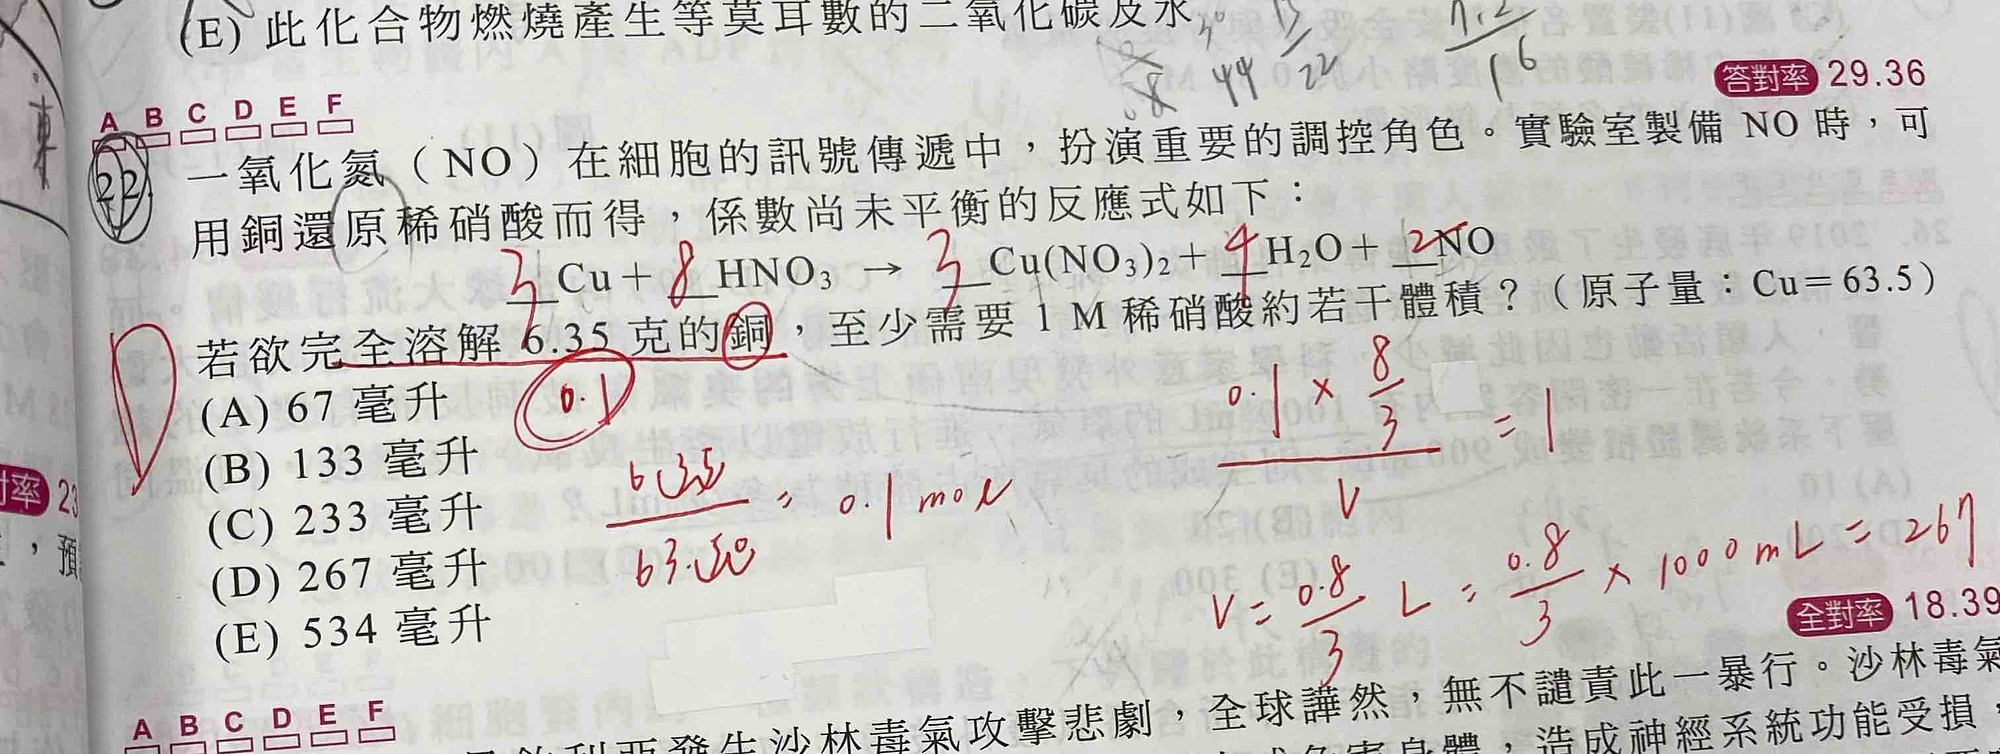 (E) 此化合物燃燒產生等莫耳數的二氧化碳及水
44 22
16
答對率 29.36
A B C D E F
22. 一氧化氮（NO）在細胞的訊號傳遞中，扮演重要的調控角色。實驗室製備 NO 時，可
用銅還原稀硝酸而得，係數尚未平衡的反應式如下：
3 Cu + 8 HNO3 → 3 Cu(NO3)2 + 4 H2O + 2 NO
若欲完全溶解 6.35 克的銅，至少需要 1 M 稀硝酸約若干體積？（原子量：Cu = 63.5）
(A) 67 毫升
0.1
(B) 133 毫升
(C) 233 毫升
(D) 267 毫升
(E) 534 毫升
6.35 / 63.50 = 0.1 mol
0.1 × 8/3 / V = 1
V = 0.8/3 L = 0.8/3 × 1000 mL = 267
對率 23
，預
全對率 18.39
A B C D E F
發生沙林毒氣攻擊悲劇，全球譁然，無不譴責此一暴行。沙林毒氣
身體，造成神經系統功能受損，